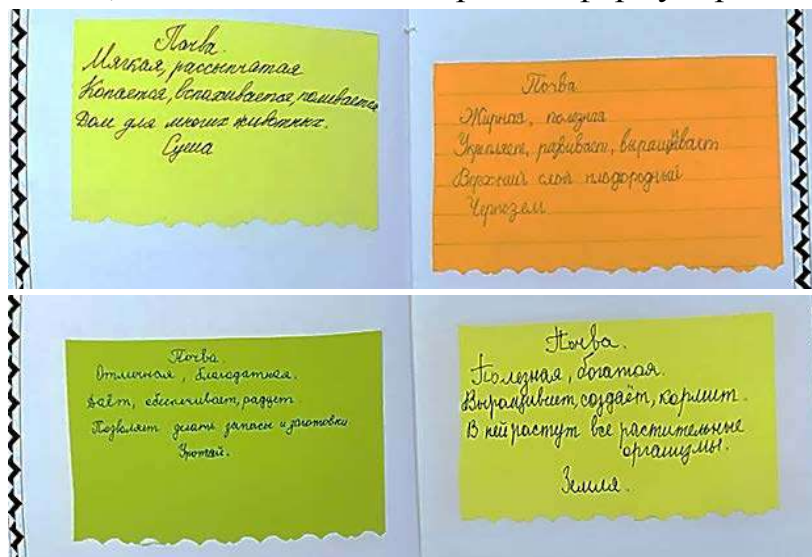 Почва.
Мягкая, рассыпчатая
Копается, вспахивается, поливается
Дом для многих животных.
Суша
Почва
Жирная, полезная
Укрепляет, развивает, выращивает
Верхний слой плодородный
Чернозем
Почва.
Отличная, благодатная.
Даёт, обеспечивает, радует
Позволяет делать запасы и заготовки
Урожай.
Почва.
Полезная, богатая.
Выращивает, создаёт, кормит.
В ней растут все растительные
организмы.
Земля.